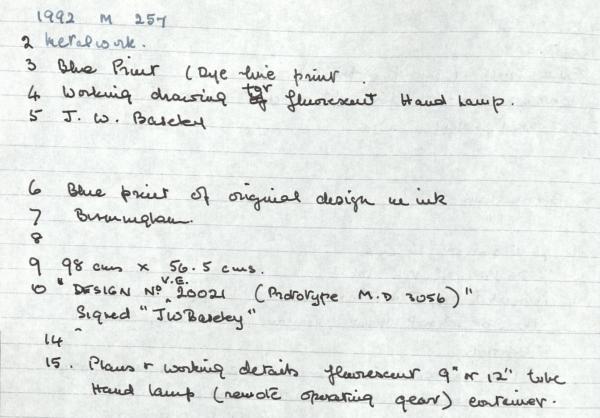 1992 M 257
2 Metalwork.
3 Blue Print (Dye-line print.
4 Working drawing for fluorescent Hand Lamp.
5 J. W. Baseley
6 Blue print of original design in ink
7 Birmingham.
8
9 98 cms x 56.5 cms.
10 "DESIGN No V.E. 20021 (Prototype M.D 3056)"
Signed "JW Baseley"
14
15. Plans & working details fluorescent 9" or 12" tube
Hand lamp (remote operating gear) container.